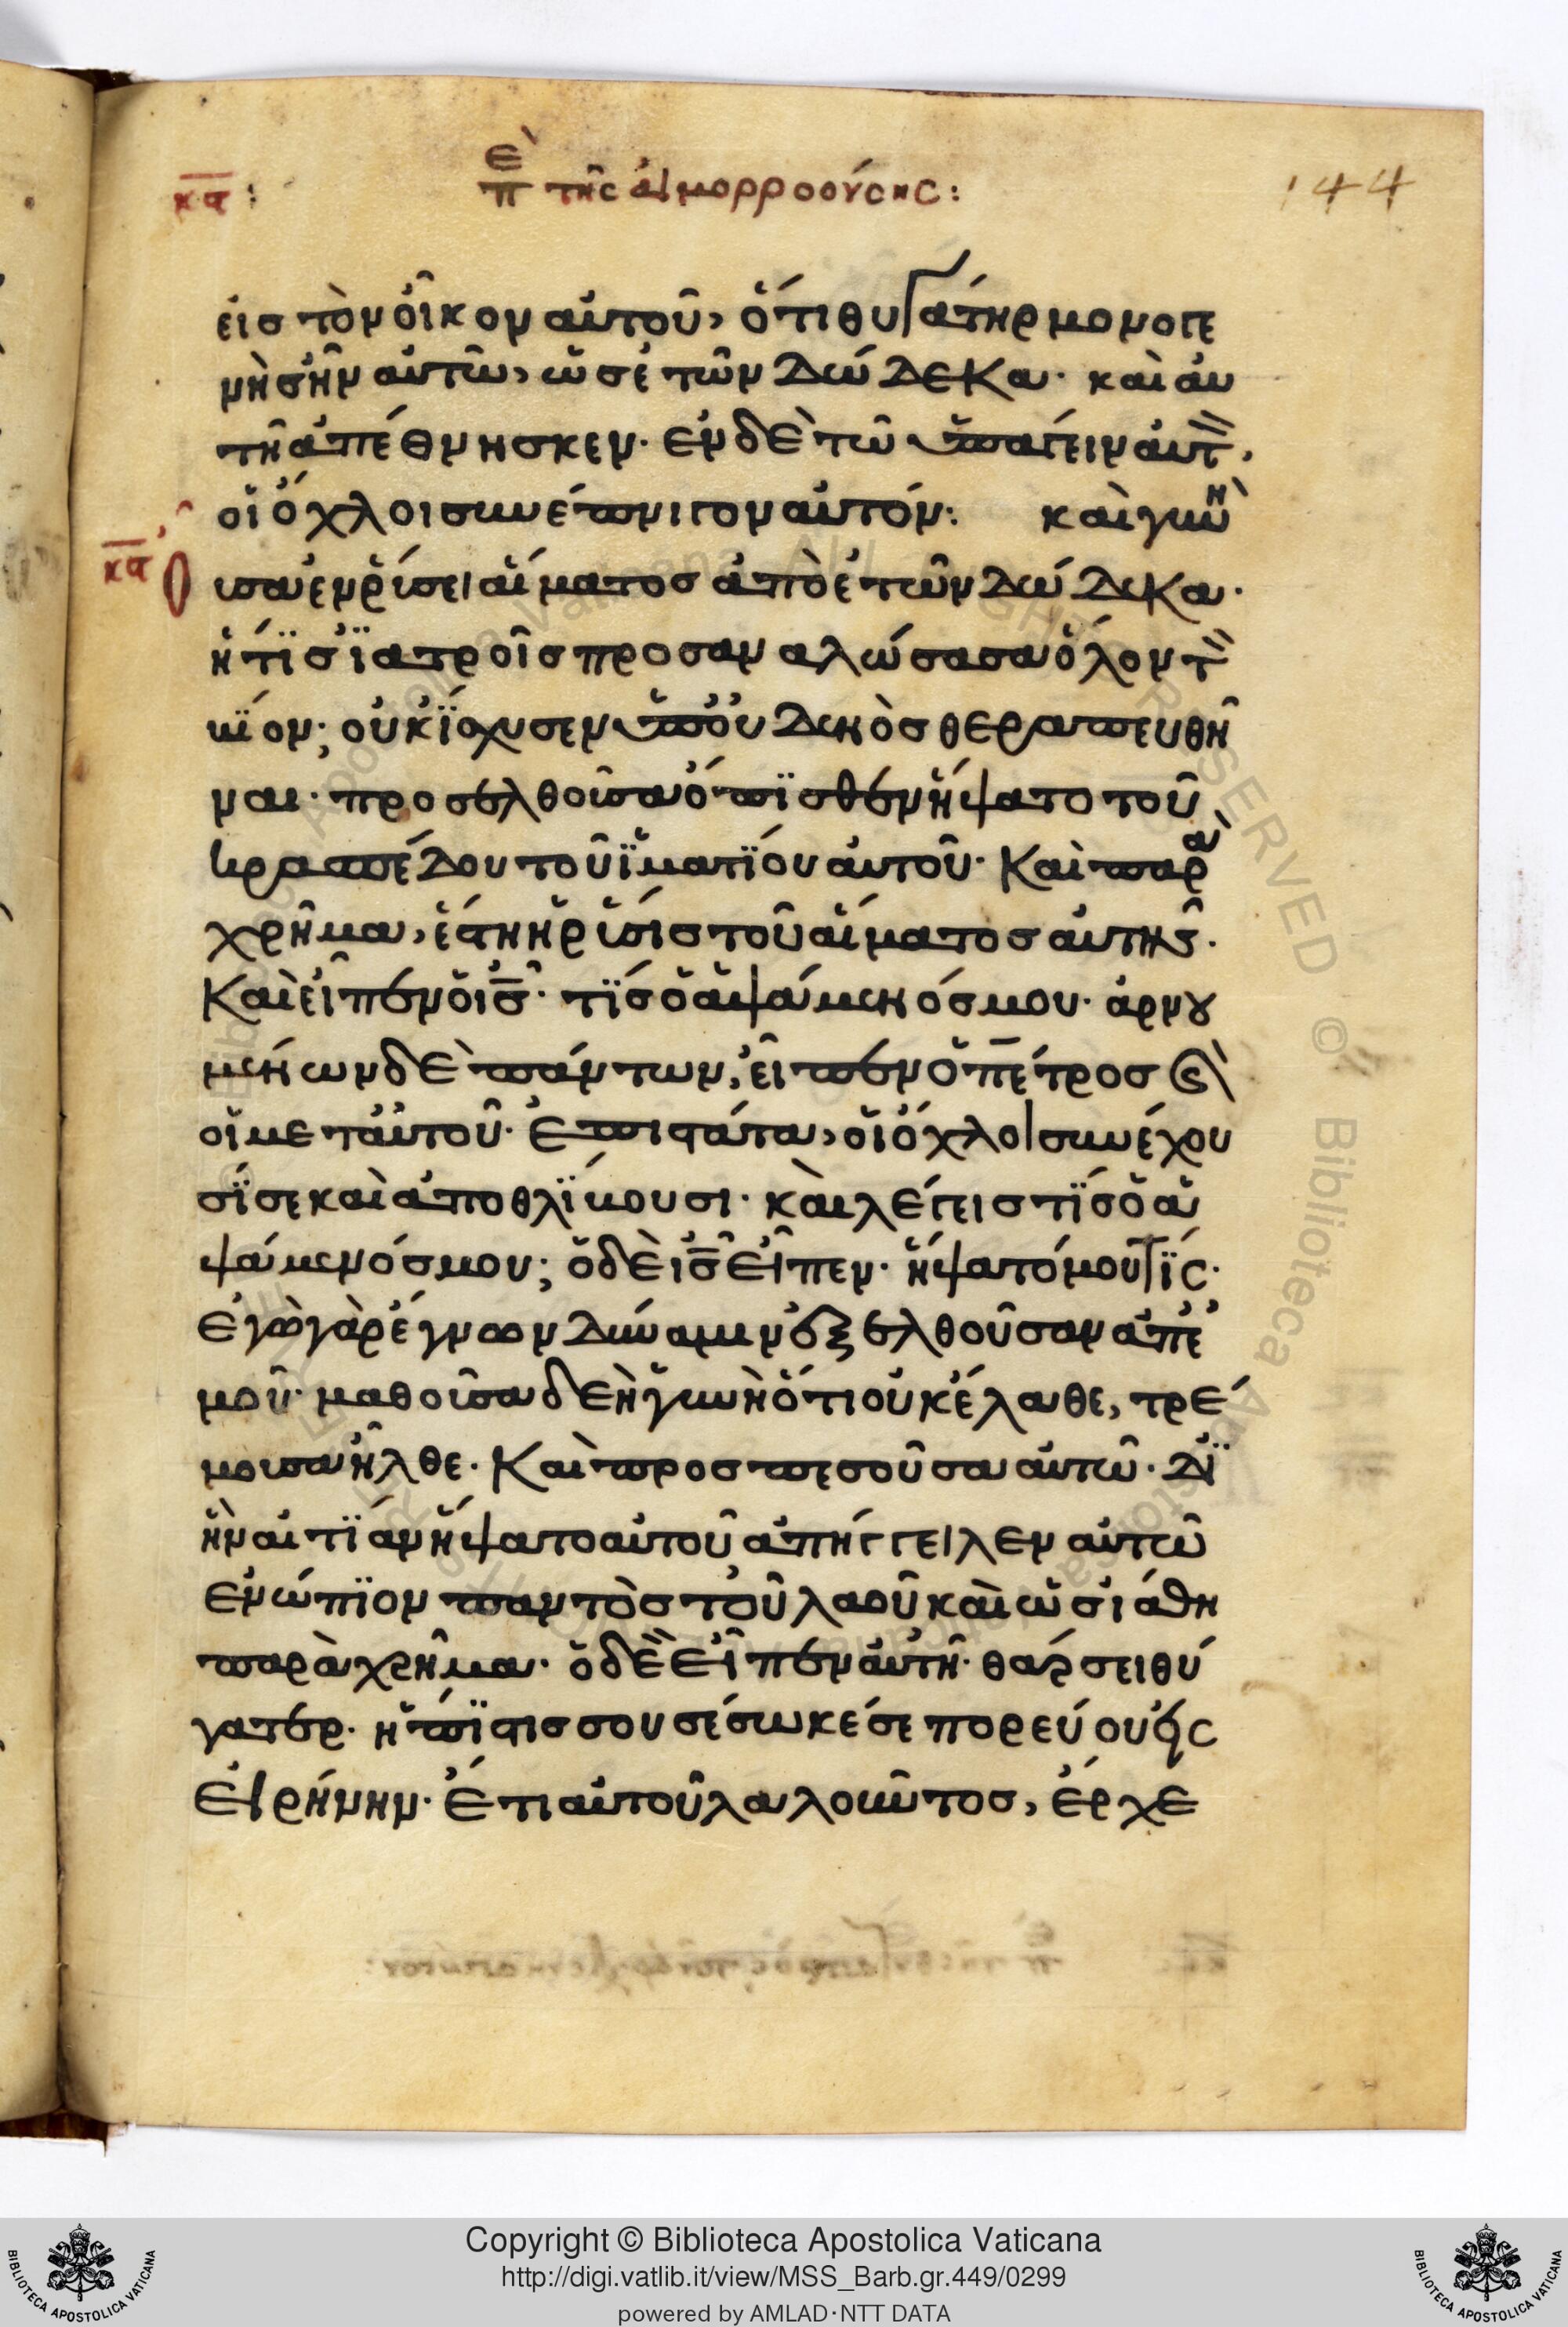 κα: πε τῆς αἱμορροούσης: 144
εἰσ τὸν οἶκον αὐτοῦ, ὅτι θυγάτηρ μονογε
νὴσ ἦν αὐτῶ, ὡσ ἐτῶν δώδεκα· καὶ αὐ
τὴ ἀπέθνησκεν· ἐν δὲ τῶ ὑπάγειν αὐτ,
οἱ ὄχλοι συνέπνιγον αὐτόν: καὶ γυνὴ
κα οὖσα ἐν ῥύσει αἵματοσ ἀπὸ ἐτῶν δώδεκα·
ἥτϊσ ϊατροῖσ προσαναλώσασα ὅλον τ
βίον· οὐκ ΐσχυσεν ὑπ' οὐδενὸσ θεραπευθῆ
ναι· προσελθοῦσα ὄπϊσθεν ἥψατο τοῦ
κρασπέδου τοῦ ϊματϊου αὐτοῦ· Καὶ παρα
χρῆμα, ἔστη ἡ ῥύσισ τοῦ αἵματοσ αὐτῆς·
Καὶ εἶπεν ὁ ισ· τΐσ ὁ ἁψάμενόσ μου· ἀρνου
μένων δὲ πάντων, εἶπεν ὁ πέτροσ καὶ
οἱ μετ' αὐτοῦ· Ἐπιστάτα, οἱ ὄχλοι συνέχου
σΐ σε καὶ ἀποθλΐβουσι· καὶ λέγεισ τΐσ ὁ ἁ
ψάμενόσ μου; ὁ δὲ ισ εἶπεν· ἥψατό μού τϊς·
Ἐγὼ γὰρ ἔγνων δύναμιν ἐξελθοῦσαν ἀπ' ἐ
μοῦ· μαθοῦσα δὲ ἡ γυνὴ ὅτι οὐκ ἔλαθε, τρέ
μουσα ἦλθε· Καὶ προσπεσοῦσα αὐτῶ· δϊ'
ἣν αἰτΐαν ἥψατο αὐτοῦ ἀπήγγειλεν αὐτῶ
ἐνώπϊον παντὸσ τοῦ λαοῦ καὶ ὡσ ιάθη
παρὰχρῆμα· ὁ δὲ εἶπεν αὐτῆ· θάρσει θύ
γατερ· ἡ πΐστισ σου σέσωκέ σε πορεύου εἰς
Εἰρήνην· Ἔτι αὐτοῦ λαλοῦντοσ, ἔρχε
Copyright © Biblioteca Apostolica Vaticana
http://digi.vatlib.it/view/MSS_Barb.gr.449/0299
powered by AMLAD·NTT DATA
BIBLIOTECA APOSTOLICA VATICANA
BIBLIOTECA APOSTOLICA VATICANA